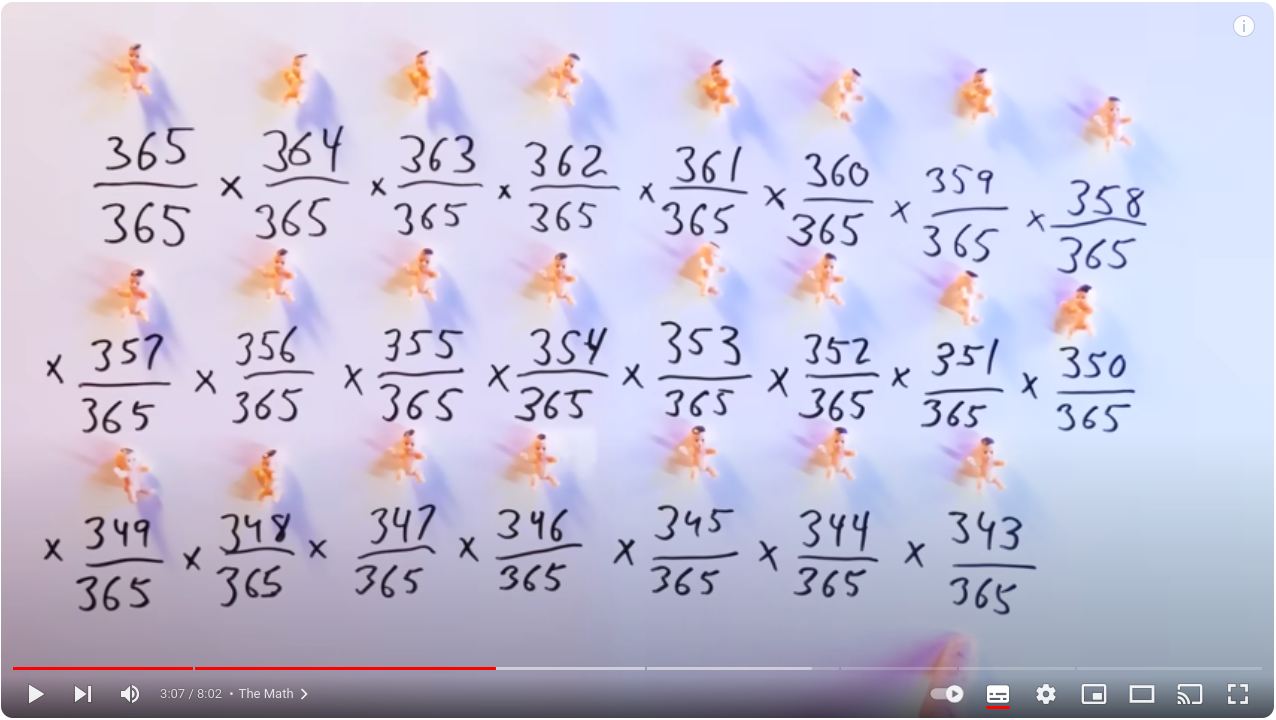 365/365 × 364/365 × 363/365 × 362/365 × 361/365 × 360/365 × 359/365 × 358/365
× 357/365 × 356/365 × 355/365 × 354/365 × 353/365 × 352/365 × 351/365 × 350/365
× 349/365 × 348/365 × 347/365 × 346/365 × 345/365 × 344/365 × 343/365
3:07 / 8:02 • The Math